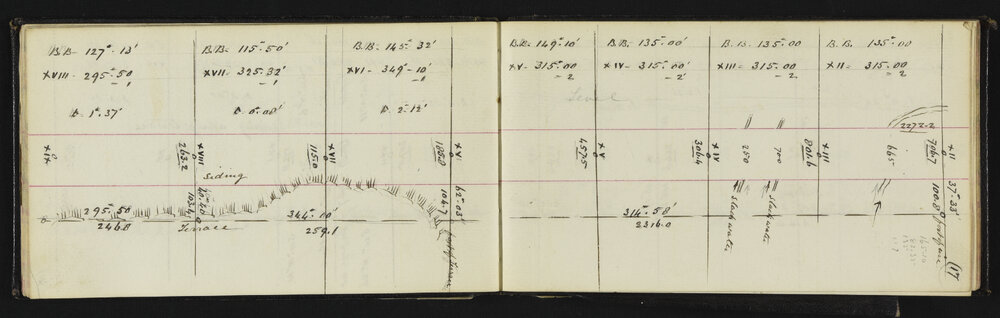 B.B- 127°-13'
XVIII- 295°-50
-1
D- 1°.37'
B.B- 115°-50'
XVII- 325°-32'
-1
D. 0°.00'
B.B- 145°- 32'
XVI- 349°-10'
-1
D. 2°-12'
XIX
XVIII
263.2
XVII
115.0
XVI
Siding
104.7
62°-03'
295°-50'
246.8
Terrace
344°-10'
259.1
B.B- 149°-10'
XV- 315°.00
-2
B.B. 135°-00'
XIV- 315°.00'
-2'
B.B. 135°-00
XIII- 315°.00
-2
B.B. 135°-00
XII- 315°.00
-2
Level
2272.2
XV
457.5
XIV
306.4
250
700
XIII
801.6
665
XII
706.7
37°-33'
100.8
Slack water
Slack water
314°-58'
2316.0
(17